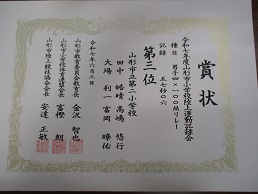 賞状
令和七年度山形市小学校陸上運動記録会
種目 男子4×100Mリレー
記録 五七秒〇六
第三位
山形市立第二小学校
田中 皓晴 高嶋 悠行
大場 利一 富岡 瞭佑
令和七年六月三日
山形市教育委員会教育長 金沢 智也
山形市小学校体育連盟会長 富樫 朗
山形市陸上競技協会会長 安達 正敏